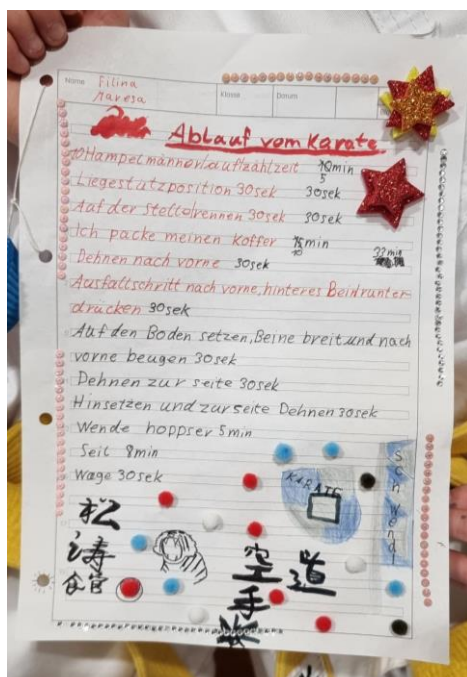 Name Filina
Maresa
Klasse
Datum
Ablauf vom Karate
Hampelmänner/aufzählzeit 5 min
Liegestützposition 30sek 30sek
Auf der Stelle rennen 30sek 30sek
Ich packe meinen Koffer 10 min
Dehnen nach vorne 30sek 22min
Ausfallschritt nach vorne, hinteres Bein runter-
drücken 30sek
Auf den Boden setzen, Beine breit und nach
vorne beugen 30sek
Dehnen zur seite 30sek
Hinsetzen und zur seite Dehnen 30sek
Wende hoppser 5min
Seil 8min
Wage 30sek
KARATE
Schwendi
松
涛
館
空
手
道